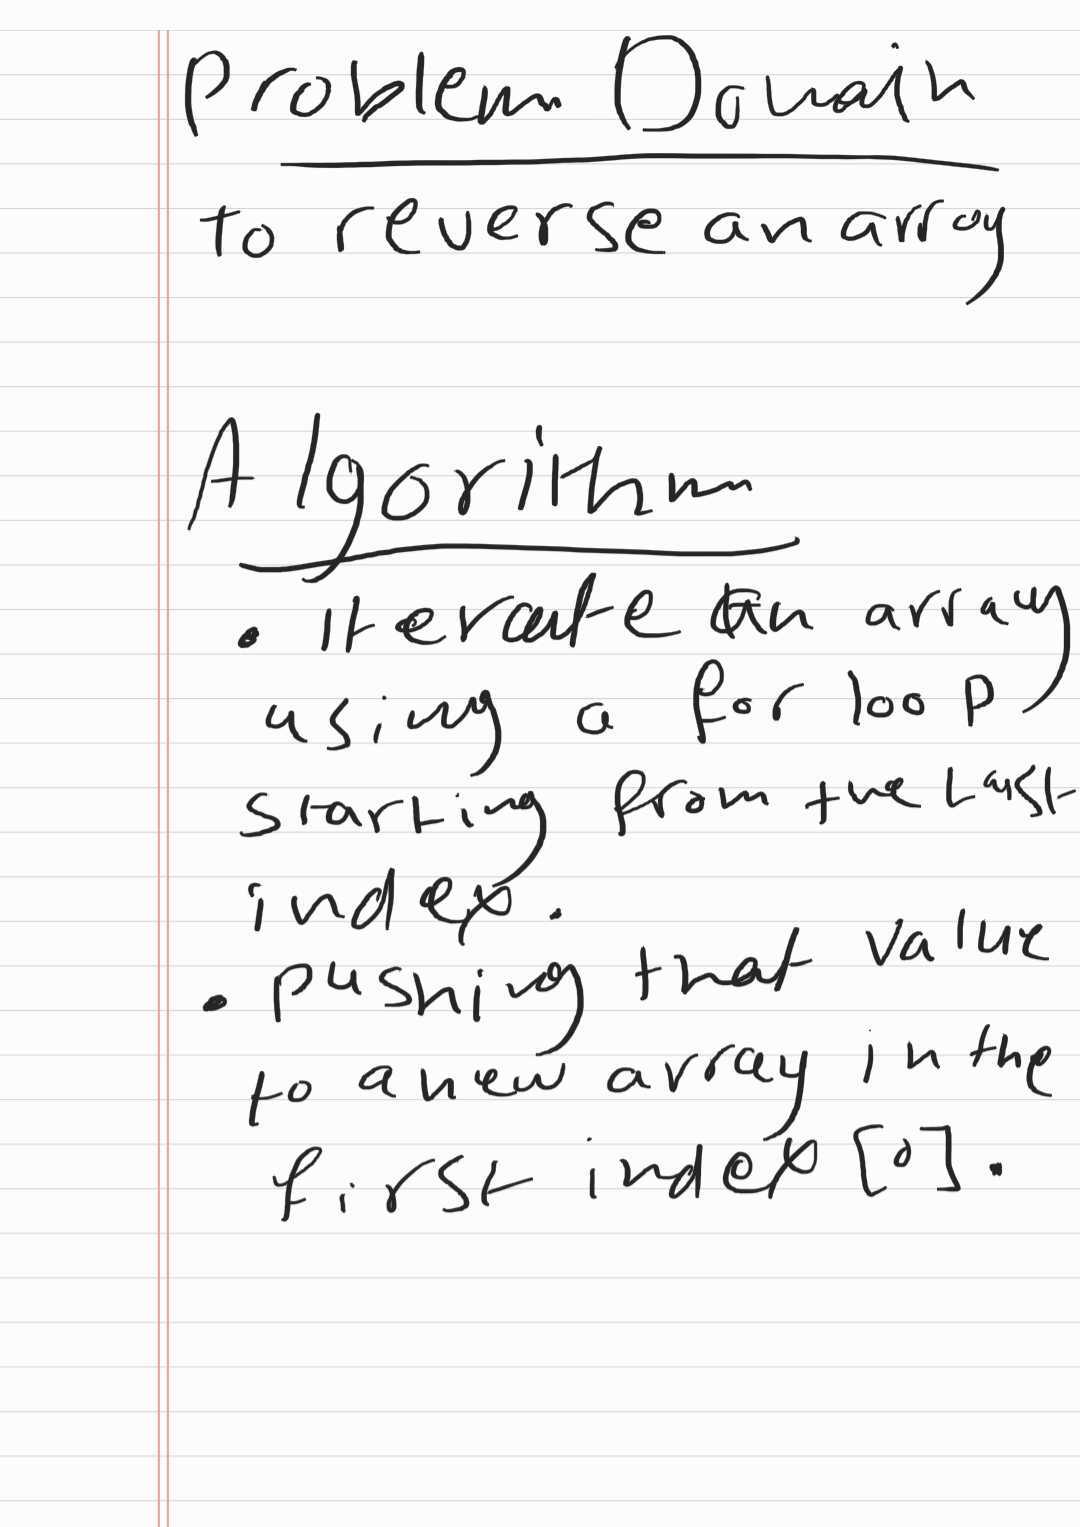 Problem Domain
to reverse an array
Algorithm
• Iterate an array
using a for loop
starting from the Last
index.
• pushing that value
to a new array in the
first index [0].